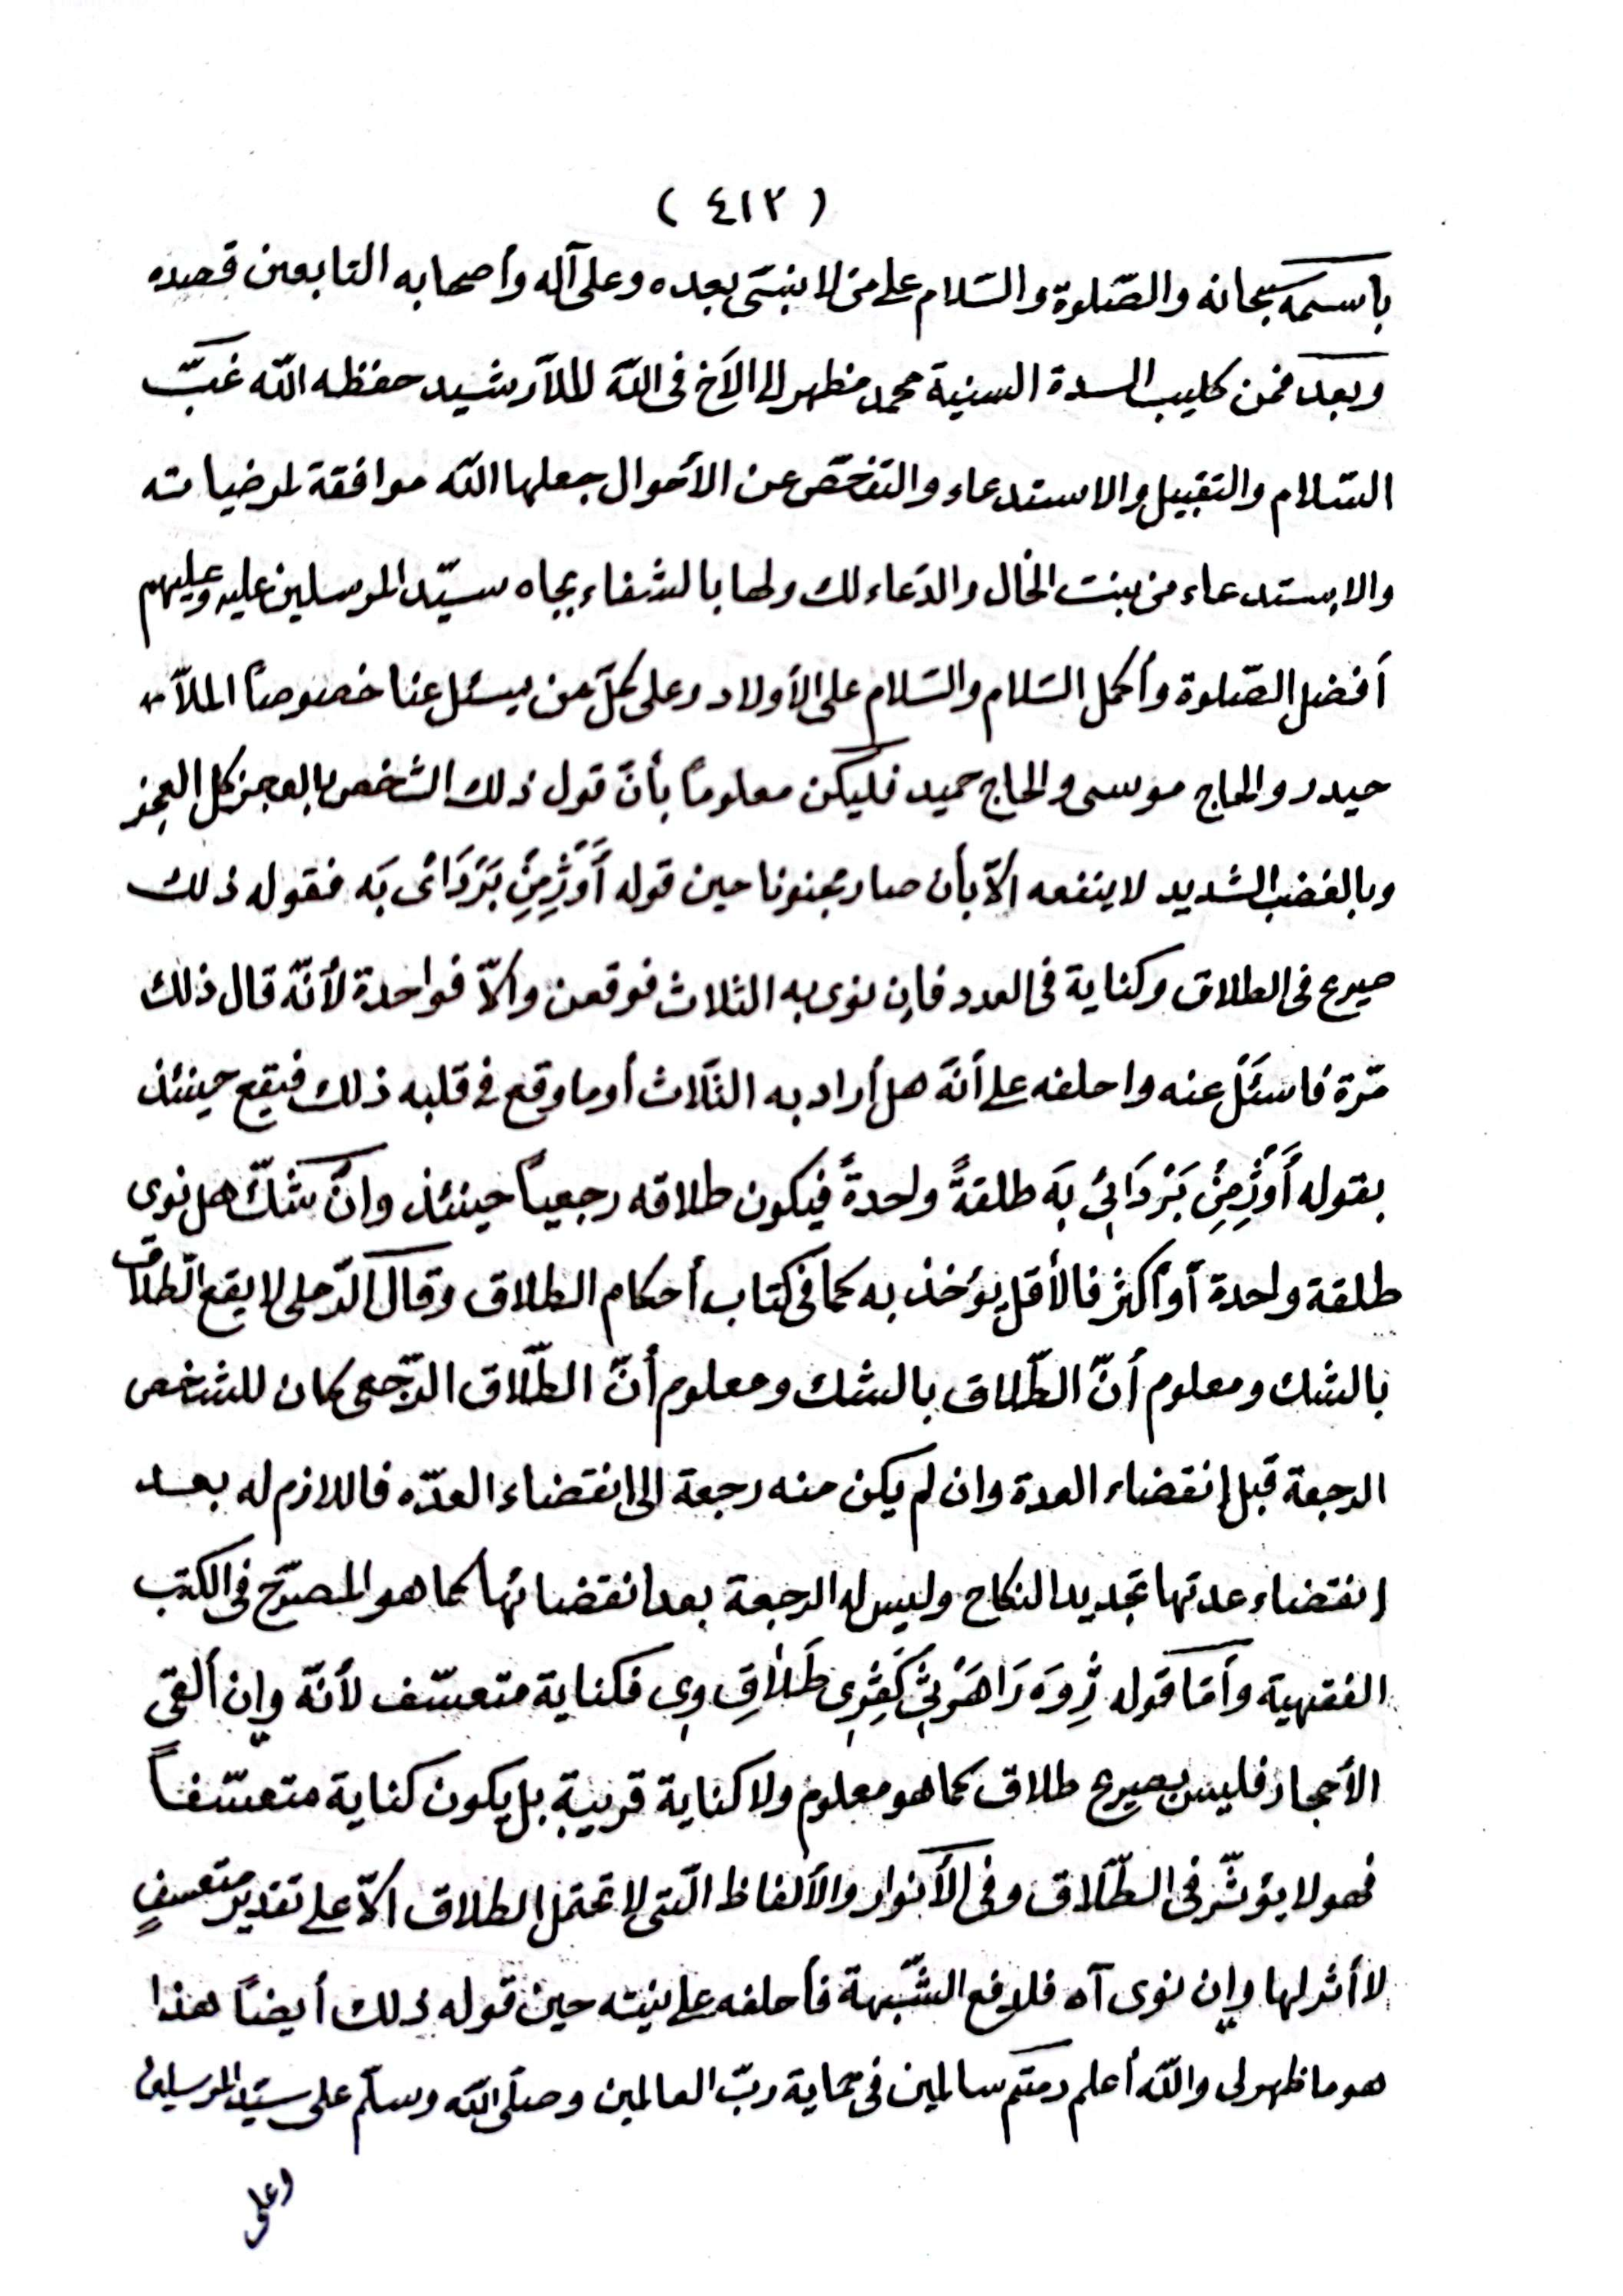 ( ٤١٢ )
باسمه سبحانه والصّلوة والسّلام على من لا نبىّ بعده وعلى آله وأصحابه التابعين قصده
وبعد فمن كليب السدة السنية محمد مظهر الى الأخ فى اللّه الملاّ رشيد حفظه اللّه غبّ
السّلام والتقبيل والاستدعاء والتفحّص عن الأحوال جعلها اللّه موافقة لمرضياته
والاستدعاء من بنت الخال والدّعاء لك ولها بالشفاء بجاه سيّد المرسلين عليه وعليهم
أفضل الصّلوة وأكمل السّلام والسّلام على الأولاد وعلى كلّ من يسئل عنا خصوصاً الملاّ
حيدر والحاج موسى والحاج حميد فليكن معلوماً بأنّ قول ذلك الشّخص بالعجز كل العجز
وبالغضب الشديد لا ينفعه الاّ بأن صار مجنونا حين قوله أَوْ ژِمِنِ بَرْدَائى بَه فقوله ذلك
صريح فى الطلاق وكناية فى العدد فإن نوى به الثلاث فوقعن والاّ فواحدة لأنّه قال ذلك
مرّة فاسئَل عنه واحلفه على أنّه هل أراد به الثّلاث أو ما وقع فى قلبه ذلك فيقع حينئذ
بقوله أَوْ ژِمِنِ بَرْدَائِى بَه طلقةً واحدةً فيكون طلاقه رجعياً حينئذ وانّ شكّ هل نوى
طلقة واحدة أو أكثر فالأقل يؤخذ به كما فى كتاب أحكام الطلاق وقال الرّملى لا يقع الطّلاق
بالشك ومعلوم أنّ الطّلاق بالشك ومعلوم أنّ الطّلاق الرّجعى كان للشخص
الرجعة قبل إنقضاء العدة وان لم يكن منه رجعة الى انقضاء العدّه فاللازم له بعد
إنقضاء عدتها تجديد النكاح وليس له الرجعة بعد انقضائها كما هو المصرّح فى الكتب
الفقهية وأمّا قوله ژِوَه رَاهَرْنِىَ كَفِرِى طَلاَقِ وِى فكناية متعسّف لأنّه وإن ألقى
الأحجار فليس بصريح طلاق كما هو معلوم ولا كناية قريبة بل يكون كناية متعسّفاً
فهو لا يؤثّر فى الطّلاق وفى الأنوار والألفاظ الّتى لا تحتمل الطلاق الاّ على تقدير متعسفٍ
لا أثر لها وإن نوى آه فلدفع الشّبهة فأحلفه على نيته حين قوله ذلك أيضاً هذا
هو ما ظهر لى واللّه أعلم دمتم سالمين فى حماية ربّ العالمين وصلّى اللّه وسلّم على سيّد المرسلين
وعلى